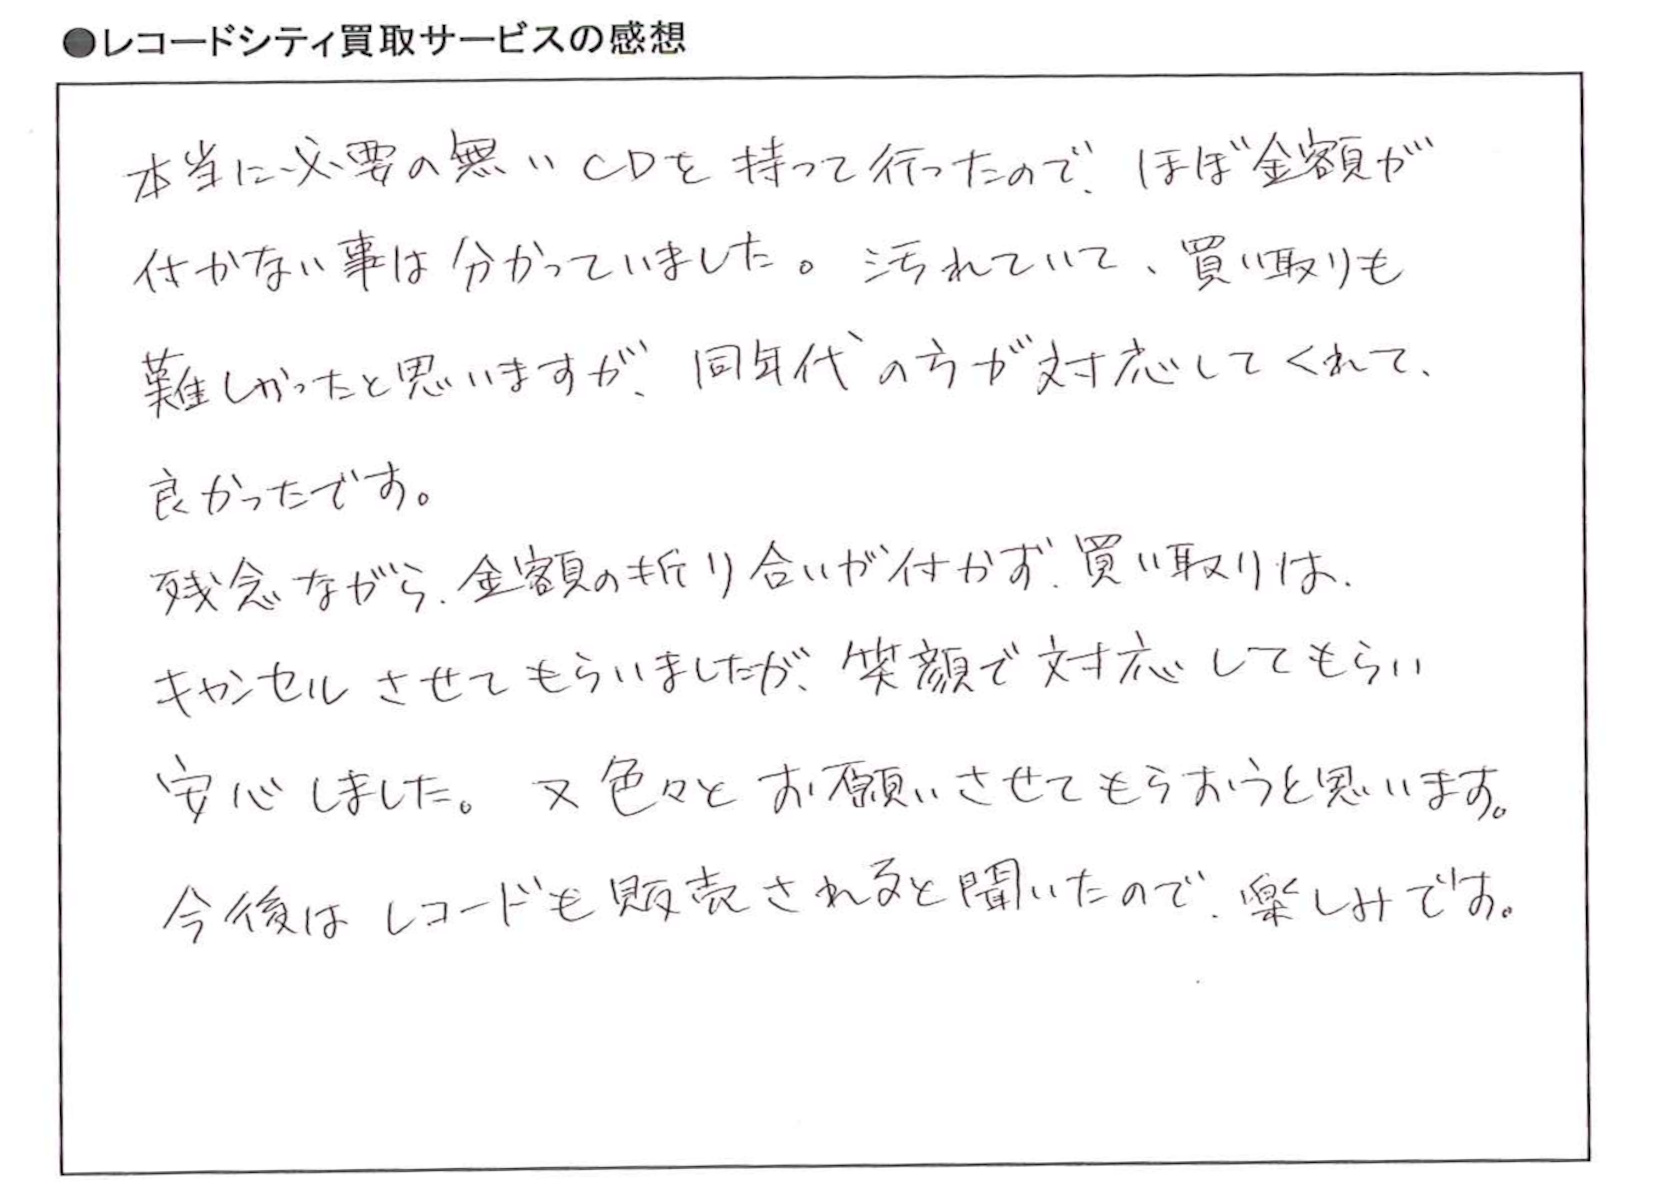 ●レコードシティ買取サービスの感想
本当に必要の無いCDを持って行ったので、ほぼ金額が
付かない事は分かっていました。汚れていて、買い取りも
難しかったと思いますが、同年代の方が対応してくれて、
良かったです。
残念ながら、金額の折り合いが付かず、買い取りは、
キャンセルさせてもらいましたが、笑顔で対応してもらい
安心しました。又色々とお願いさせてもらおうと思います。
今後はレコードも販売されると聞いたので、楽しみです。